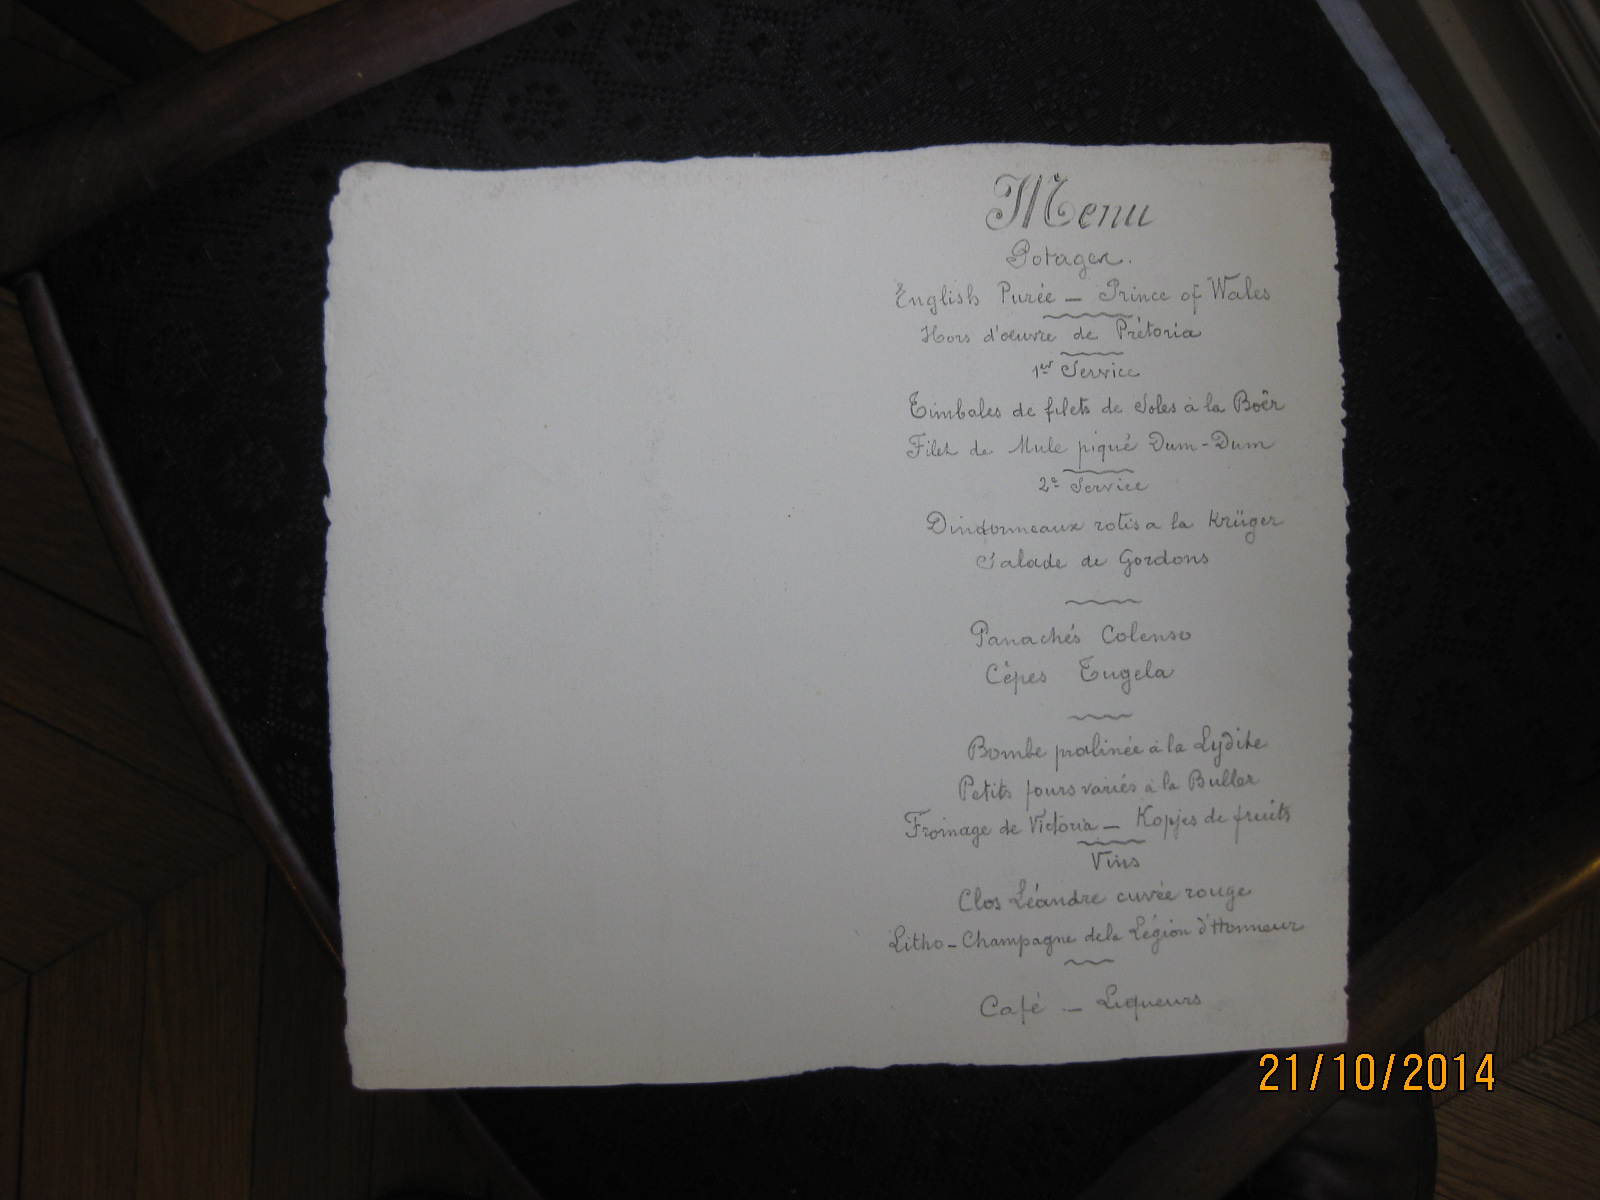 Menu
Potages.
English Purée — Prince of Wales
Hors d'œuvre de Prétoria
1er Service
Timbales de filets de Soles à la Boër
Filet de Mule piqué Dum-Dum
2e Service
Dindonneaux rotis a la Krüger
Salade de Gordons
Panachés Colenso
Cèpes Tugela
Bombe pralinée à la Lydite
Petits fours variés à la Buller
Fromage de Victoria — Kopjes de fruits
Vins
Clos Léandre cuvée rouge
Litho-Champagne de la Légion d'Honneur
Café — Liqueurs
21/10/2014